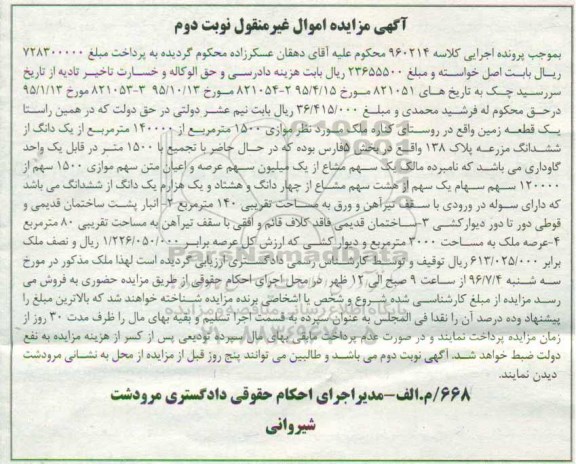 آگهی مزایده اموال غیرمنقول نوبت دوم
بموجب پرونده اجرایی کلاسه ۹۶۰۲۱۴ محکوم علیه آقای دهقان عسکرزاده محکوم گردیده به پرداخت مبلغ ۷۲۸۳۰۰۰۰۰
ریال بابت اصل خواسته و مبلغ ۲۳۶۵۵۵۰۰ ریال بابت هزینه دادرسی و حق الوکاله و خسارت تاخیر تادیه از تاریخ
سررسید چک به تاریخ های ۸۲۱۰۵۱ مورخ ۹۵/۴/۱۵ ۲-۸۲۱۰۵۴ مورخ ۹۵/۱۰/۱۳ ۳-۸۲۱۰۵۳ مورخ ۹۵/۱/۱۳
درحق محکوم له فرشید محمدی و مبلغ ۳۶/۴۱۵/۰۰۰ ریال بابت نیم عشر دولتی در حق دولت که در همین راستا
یک قطعه زمین واقع در روستای کناره ملک مورد نظر موازی ۱۵۰۰ مترمربع از ۱۴۰۰۰۰ مترمربع از یک دانگ از
ششدانگ مزرعه پلاک ۱۳۸ واقع در بخش ۵فارس بوده که در حال حاضر با تجمیع با ۱۵۰۰ متر در قابل یک واحد
گاوداری می باشد که نامبرده مالک یک سهم مشاع از یک میلیون سهم عرصه و اعیان متن سهم موازی ۱۵۰۰ سهم از
۱۲۰۰۰۰ سهم سهام یک سهم از هشت سهم مشاع از چهار دانگ و هشتاد و یک هزارم یک دانگ از ششدانگ می باشد
که دارای سوله در ورودی با سقف تیرآهن و ورق به مساحت تقریبی ۱۴۰ مترمربع ۲- انبار پشت ساختمان قدیمی و
قوطی دور تا دور دیوارکشی ۳-ساختمان قدیمی فاقد کلاف قائم و افقی با سقف تیرآهن به مساحت تقریبی ۸۰ مترمربع
۴-عرصه ملک به مساحت ۳۰۰۰ مترمربع و دیوار کشی که ارزش کل عرصه برابر ۱/۲۲۶/۰۵۰/۰۰۰ ریال و نصف ملک
برابر ۶۱۳/۰۲۵/۰۰۰ ریال توقیف و توسط کارشناس رسمی دادگستری ارزیابی گردیده است لهذا ملک مذکور در مورخ
سه شنبه ۹۶/۷/۴ از ساعت ۹ صبح الی ۱۲ ظهر در محل اجرای احکام حقوقی از طریق مزایده حضوری به فروش می
رسد مزایده از مبلغ کارشناسی شده شروع و شخص یا اشخاصی برنده مزایده شناخته خواهند شد که بالاترین مبلغ را
پیشنهاد وده درصد آن را نقدا فی المجلس به عنوان سپرده به قسمت اجرا تسلیم و بقیه بهای مال را ظرف مدت ۳۰ روز از
زمان مزایده پرداخت نمایند و در صورت عدم پرداخت مابقی بهای مال سپرده تودیعی پس از کسر از هزینه مزایده به نفع
دولت ضبط خواهد شد. آگهی نوبت دوم می باشد و طالبین می توانند پنج روز قبل از مزایده از محل به نشانی مرودشت
دیدن نمایند.
۶۶۸/م.الف-مدیراجرای احکام حقوقی دادگستری مرودشت
شیروانی